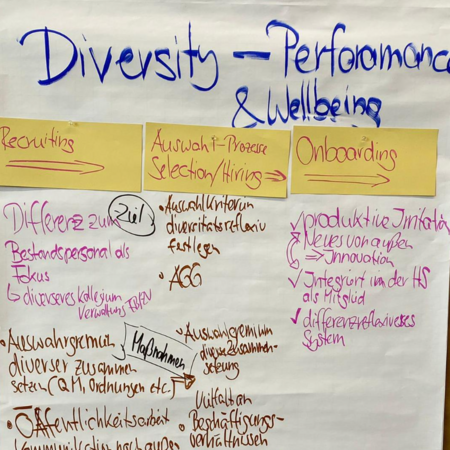 Diversity – Perforamance
& Wellbeing
Recruiting
Auswahl-Prozesse
Selection/Hiring
Onboarding
Differenz zum
Bestandspersonal als
Fokus
diverseres Kollegium
Verwaltung
Ziel
• Auswahlgremium
diverser zusammen
setzen (QM, Ordnungen etc.)
Maßnahmen
• Öffentlichkeitsarbeit
Kommunikation nach außen
• Auswahlkriterien
diversitätsreflexiv
festlegen
• AGG
• Auswahlgremium
diverse Zusammen-
setzung
Vielfalt an
• Beschäftigungs-
verhältnissen
✓ produktive Irritation
✓ Neues von außen
⇒ Innovation
✓ Integriert in der HS
als Mitglied
✓ differenzreflexiveses
System